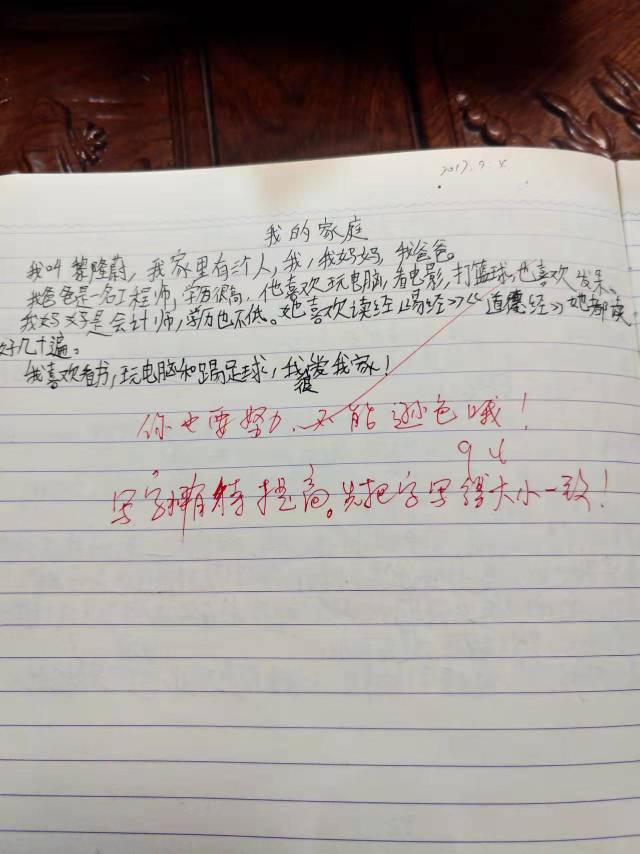 2017.9.4
我的家庭
我叫黎隆蔚，我家里有三个人，我，我妈妈，我爸爸。
我爸爸是一名工程师，学历很高，他喜欢玩电脑，看电影，打篮球，也喜欢发呆、
我妈妈是会计师，学历也不低。她喜欢读经《易经》《道德经》她都读
好几十遍。
我喜欢看书，玩电脑和踢足球，我很爱我家！
你也要努力，不能逊色哦！
94
写字有待提高。先把字写得大小一致！